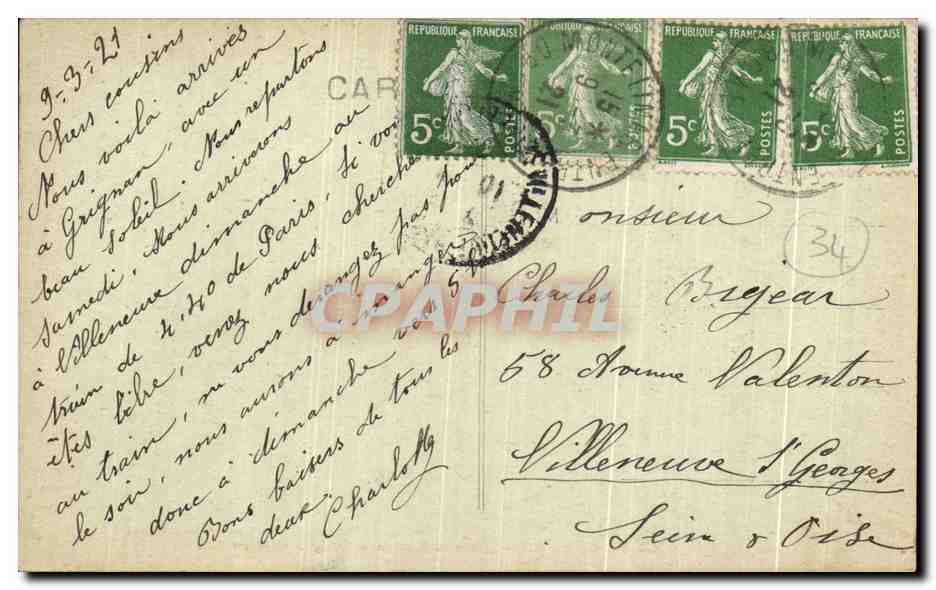 9-3-21
Chers cousins
Nous voilà arrivés
à Grignan, avec un
beau soleil. Nous repartons
samedi, nous arriverons
à Villeneuve dimanche au
train de 4,40 de Paris, si vous
êtes libre, venez nous chercher
au train, ne vous dérangez pas pour
le soir, nous aurons à manger
donc à dimanche vers 5
Bons baisers de tous les
deux.
Charlotte
CAR
REPUBLIQUE FRANÇAISE
5c POSTES
REPUBLIQUE FRANÇAISE
POSTES
REPUBLIQUE FRANÇAISE
5c POSTES
REPUBLIQUE FRANÇAISE
5c POSTES
Monsieur
Charles Bigear
68 Avenue Valenton
Villeneuve St Georges
Seine & Oise
34
CPAPHIL